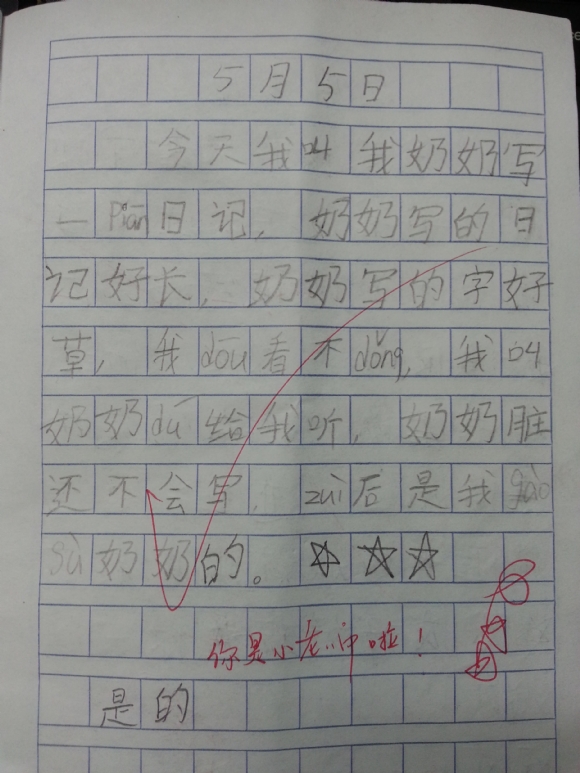 5月5日
今天我叫我奶奶写
一piān日记，奶奶写的日
记好长，奶奶写的字好
草，我dōu看不dǒng，我叫
奶奶dú给我听，奶奶脏
还不会写，zuì后是我gào
sù奶奶的。☆☆☆
你是小老师啦！
是的